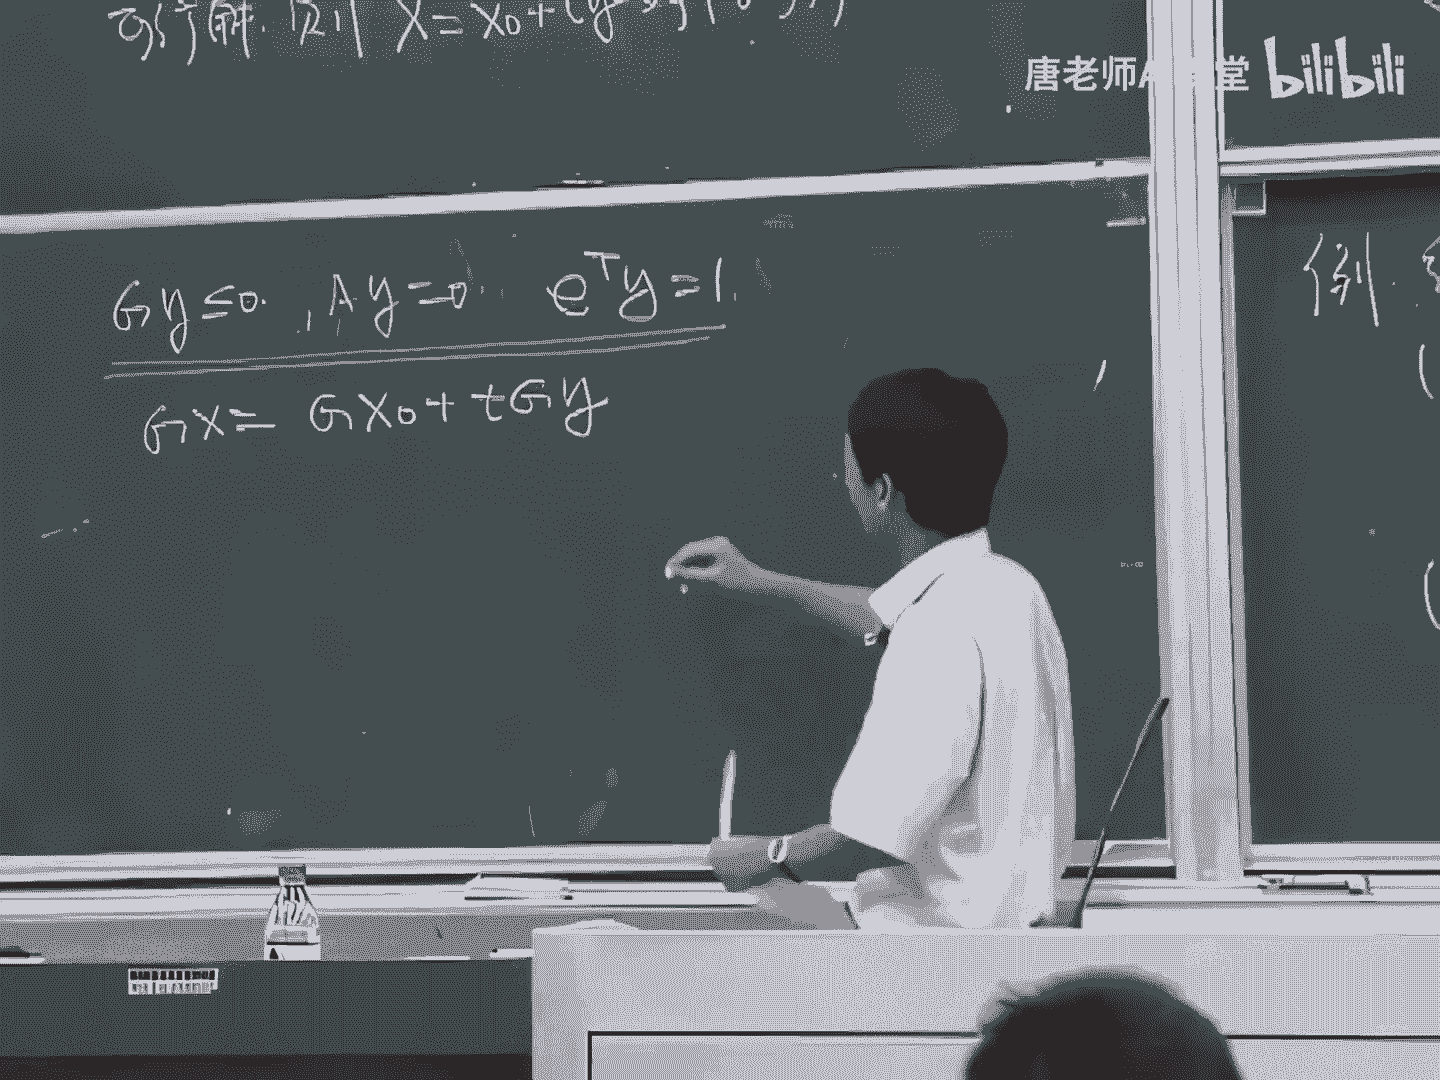 可行解.则 X = x₀ +
唐老师A 堂 bilibili
Gy ≤ 0. , Ay = 0. eᵀy = 1.
Gx = Gx₀ + tGy
例